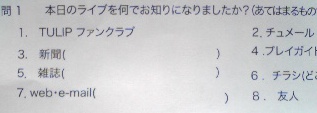 問1 本日のライブを何でお知りになりましたか?(あてはまるもの
1. TULIP ファンクラブ 2. チュメール
3. 新聞( ) 4.プレイガイド
5. 雑誌( ) 6. チラシ(ど
7. web・e-mail( ) 8. 友人